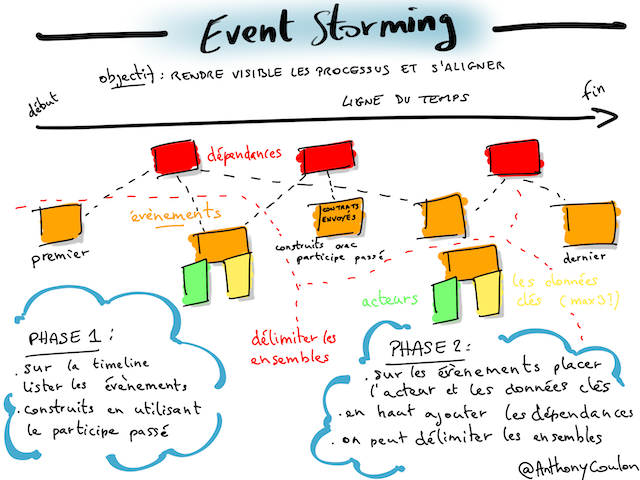 Event Storming
objectif : RENDRE VISIBLE LES PROCESSUS ET S'ALIGNER
début
LIGNE DU TEMPS
fin
dépendances
évènements
CONTRATS
ENVOYÉS
premier
construits avec
participe passé
dernier
acteurs
les données
clés (max 3?)
délimiter les
ensembles
PHASE 1 :
. sur la timeline
lister les évènements
. construits en utilisant
le participe passé
PHASE 2 :
. sur les évènements placer
l'acteur et les données clés
. en haut ajouter les dépendances
. on peut délimiter les ensembles
@AnthonyCoulon